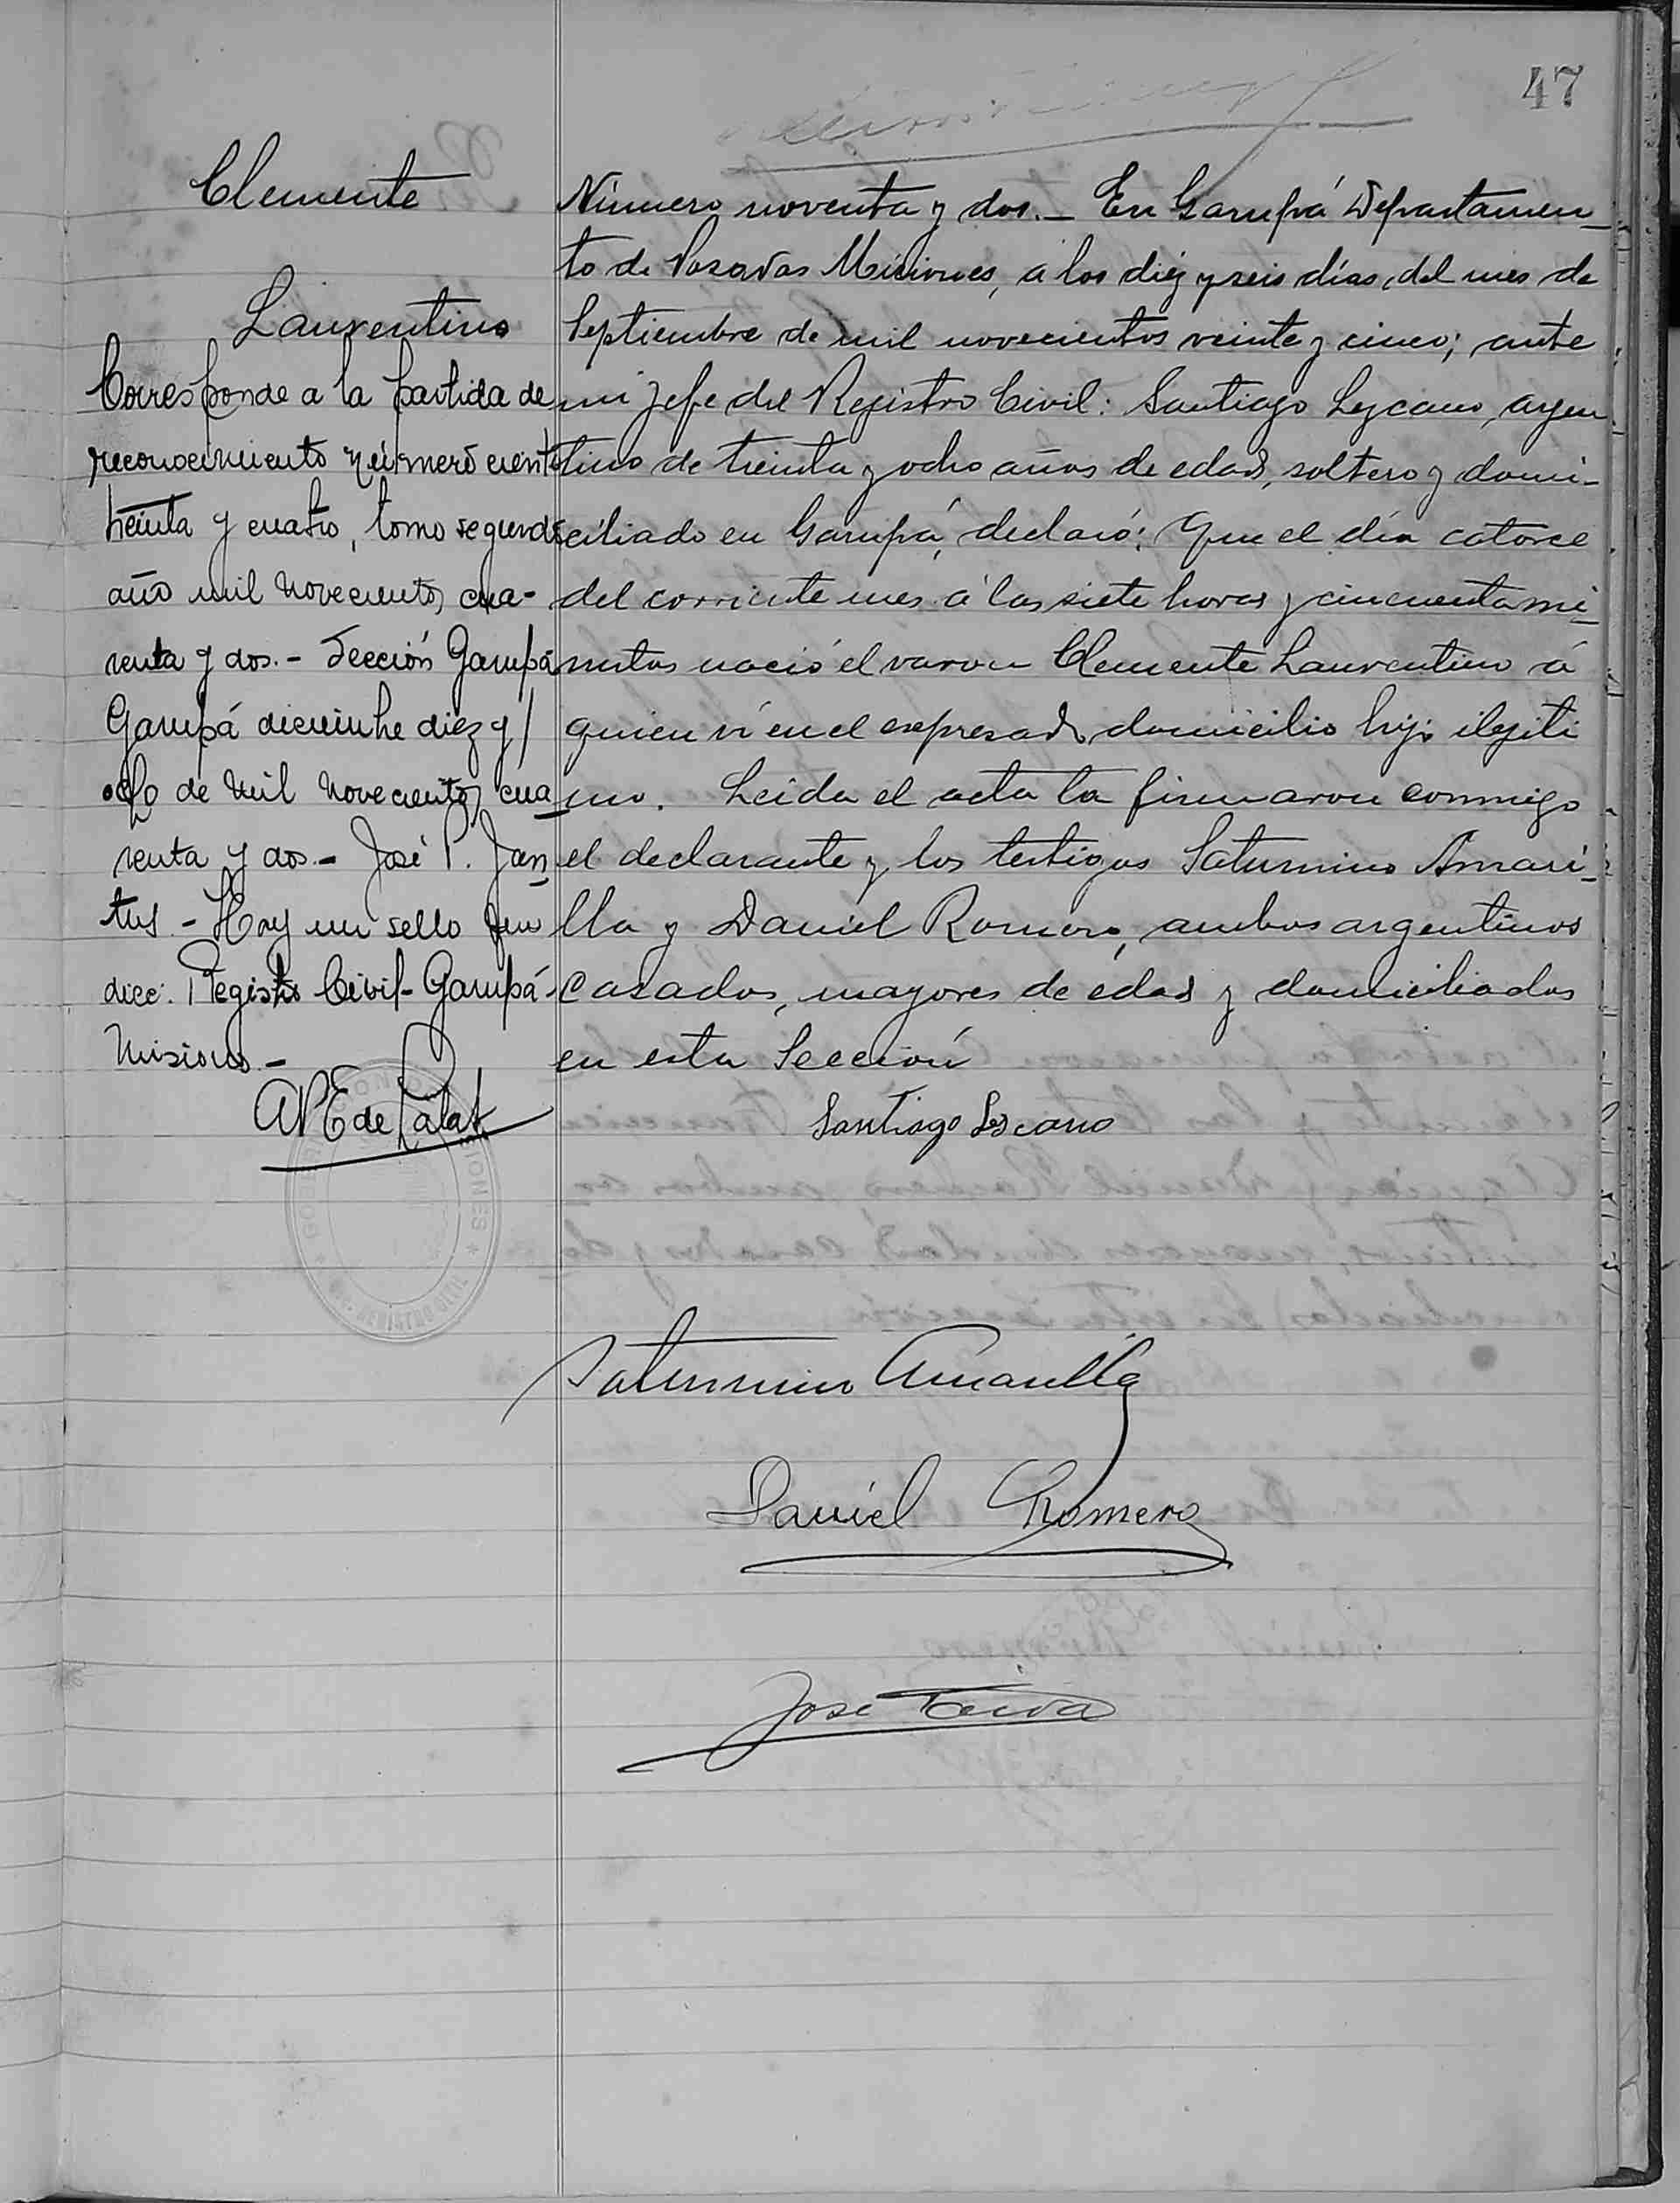 47
Clemente
Laurentino
Corresponde a la partida de
reconocimiento número ciento
treinta y cuatro, tomo segundo
año mil novecientos cua-
renta y dos.- Sección Garupá
Garupá diciembre diez y
ocho de mil novecientos cua
renta y dos.- José P. San
tus.- Hay un sello que
dice: Registro Civil-Garupá-
Misiones.-
Número noventa y dos.- En Garupá Departamen-
to de Posadas Misiones, á los diéz y seis días, del mes de
Septiembre de mil novecientos veinte y cinco; ante
mi Jefe del Registro Civil: Santiago Lezcano, argen
tino de treinta y ocho años de edad, soltero y domi-
ciliado en Garupá, declaró: Que el día catorce
del corriente mes á las siete horas y cincuenta mi-
nutos nació el varon Clemente Laurentino á
quien ví en el expresado domicilio hijo ilegiti
mo. Leida el acta la firmaron conmigo
el declarante y los testigos Saturnino Amari-
lla y Daniel Romero, ambos argentinos
casados, mayores de edad y domiciliados
en esta Sección
Santiago Lezcano
Saturnino Amarilla
Daniel Romero
José